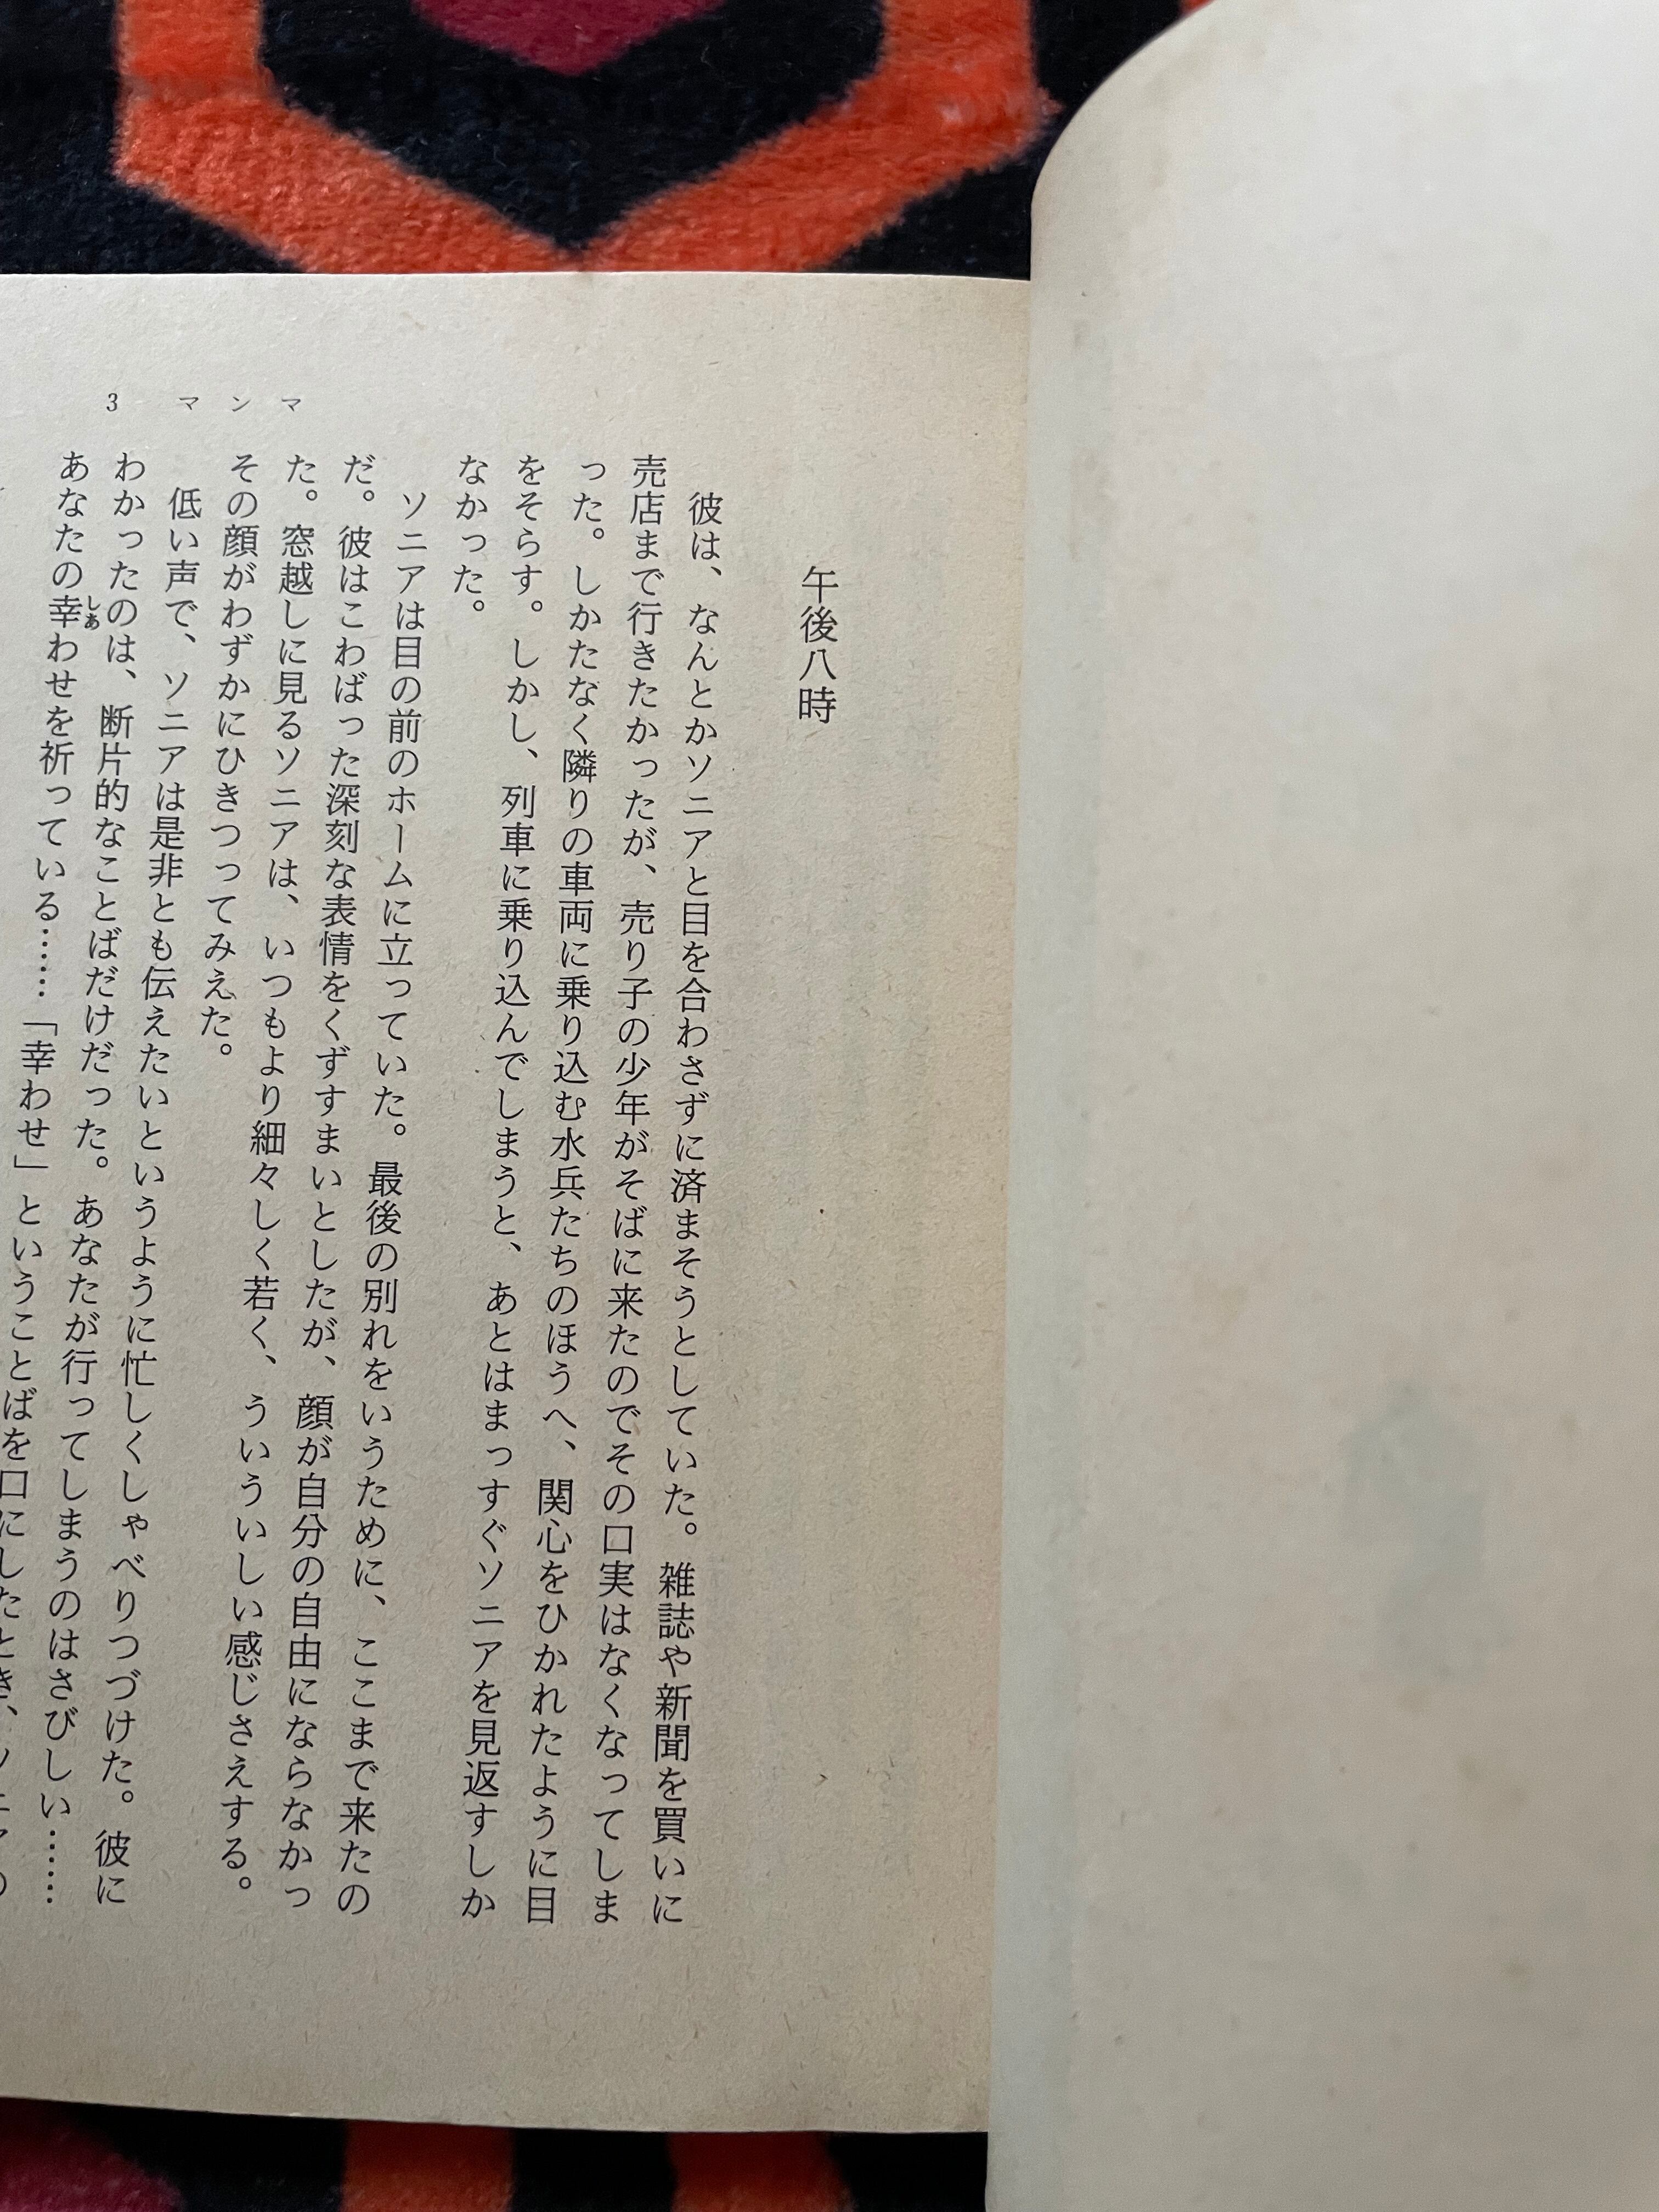 午後八時
彼は、なんとかソニアと目を合わさずに済まそうとしていた。雑誌や新聞を買いに
売店まで行きたかったが、売り子の少年がそばに来たのでその口実はなくなってしま
った。しかたなく隣りの車両に乗り込む水兵たちのほうへ、関心をひかれたように目
をそらす。しかし、列車に乗り込んでしまうと、あとはまっすぐソニアを見返すしか
なかった。
ソニアは目の前のホームに立っていた。最後の別れをいうために、ここまで来たの
だ。彼はこわばった深刻な表情をくずすまいとしたが、顔が自分の自由にならなかっ
た。窓越しに見るソニアは、いつもより細々しく若く、ういういしい感じさえする。
その顔がわずかにひきつってみえた。
低い声で、ソニアは是非とも伝えたいというように忙しくしゃべりつづけた。彼に
わかったのは、断片的なことばだけだった。あなたが行ってしまうのはさびしい……
あなたの幸わせを祈っている……「幸わせ」ということばを口にしたとき、ソニアの
しあ
マンマ 3